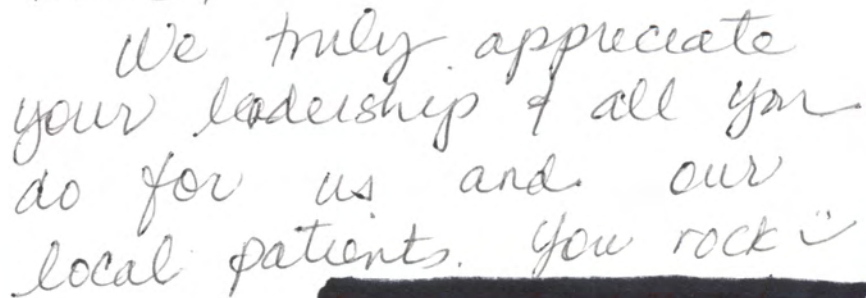 We truly appreciate
your leadership & all you
do for us and our
local patients. You rock ☺